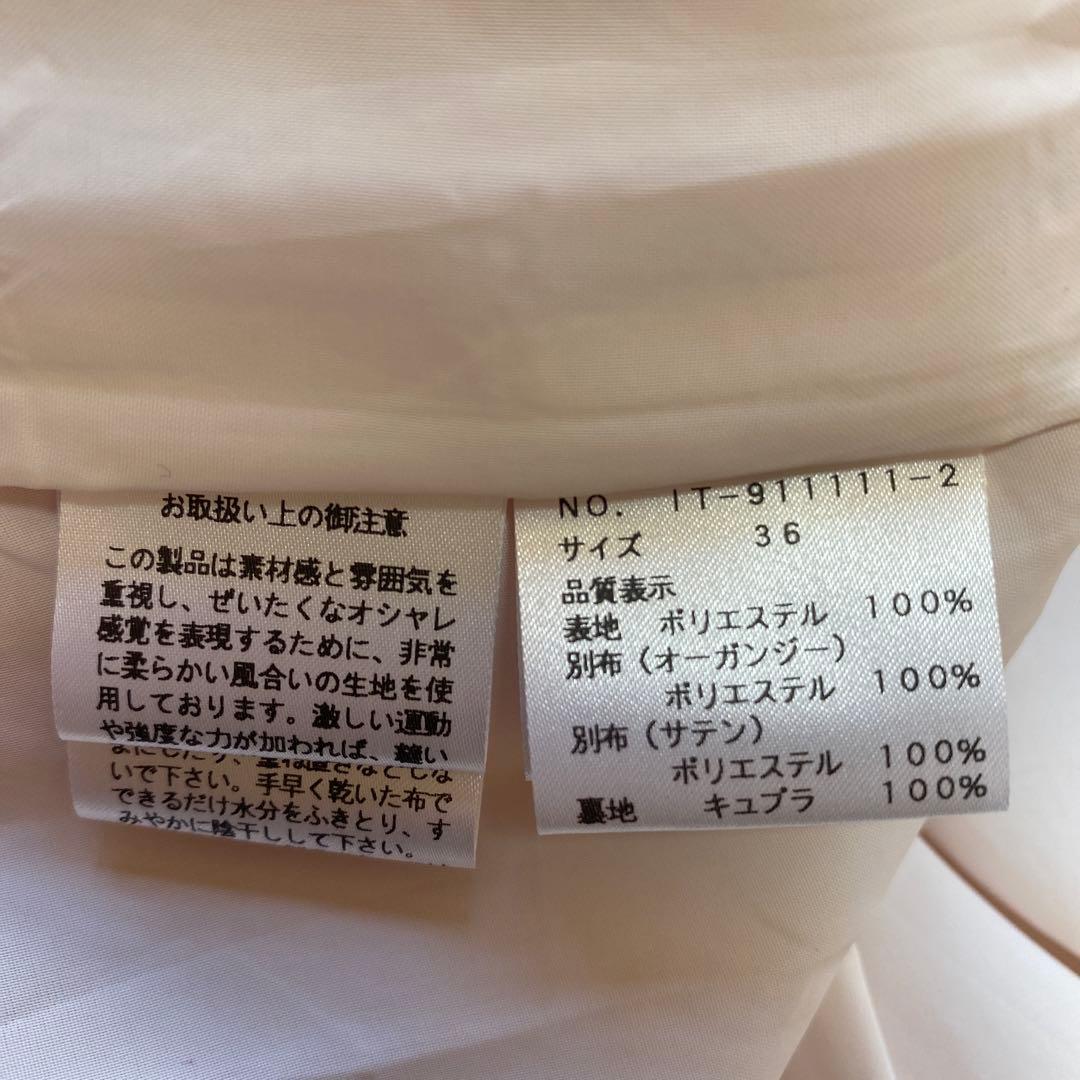 お取扱い上の御注意
この製品は素材感と雰囲気を
重視し、ぜいたくなオシャレ
感覚を表現するために、非常
に柔らかい風合いの生地を使
用しております。激しい運動
や強度な力が加われば、縫い
いで下さい。手早く乾いた布で
できるだけ水分をふきとり、す
みやかに陰干しして下さい。
NO. IT-911111-2
サイズ 36
品質表示
表地 ポリエステル 100%
別布(オーガンジー)
ポリエステル 100%
別布(サテン)
ポリエステル 100%
裏地 キュプラ 100%